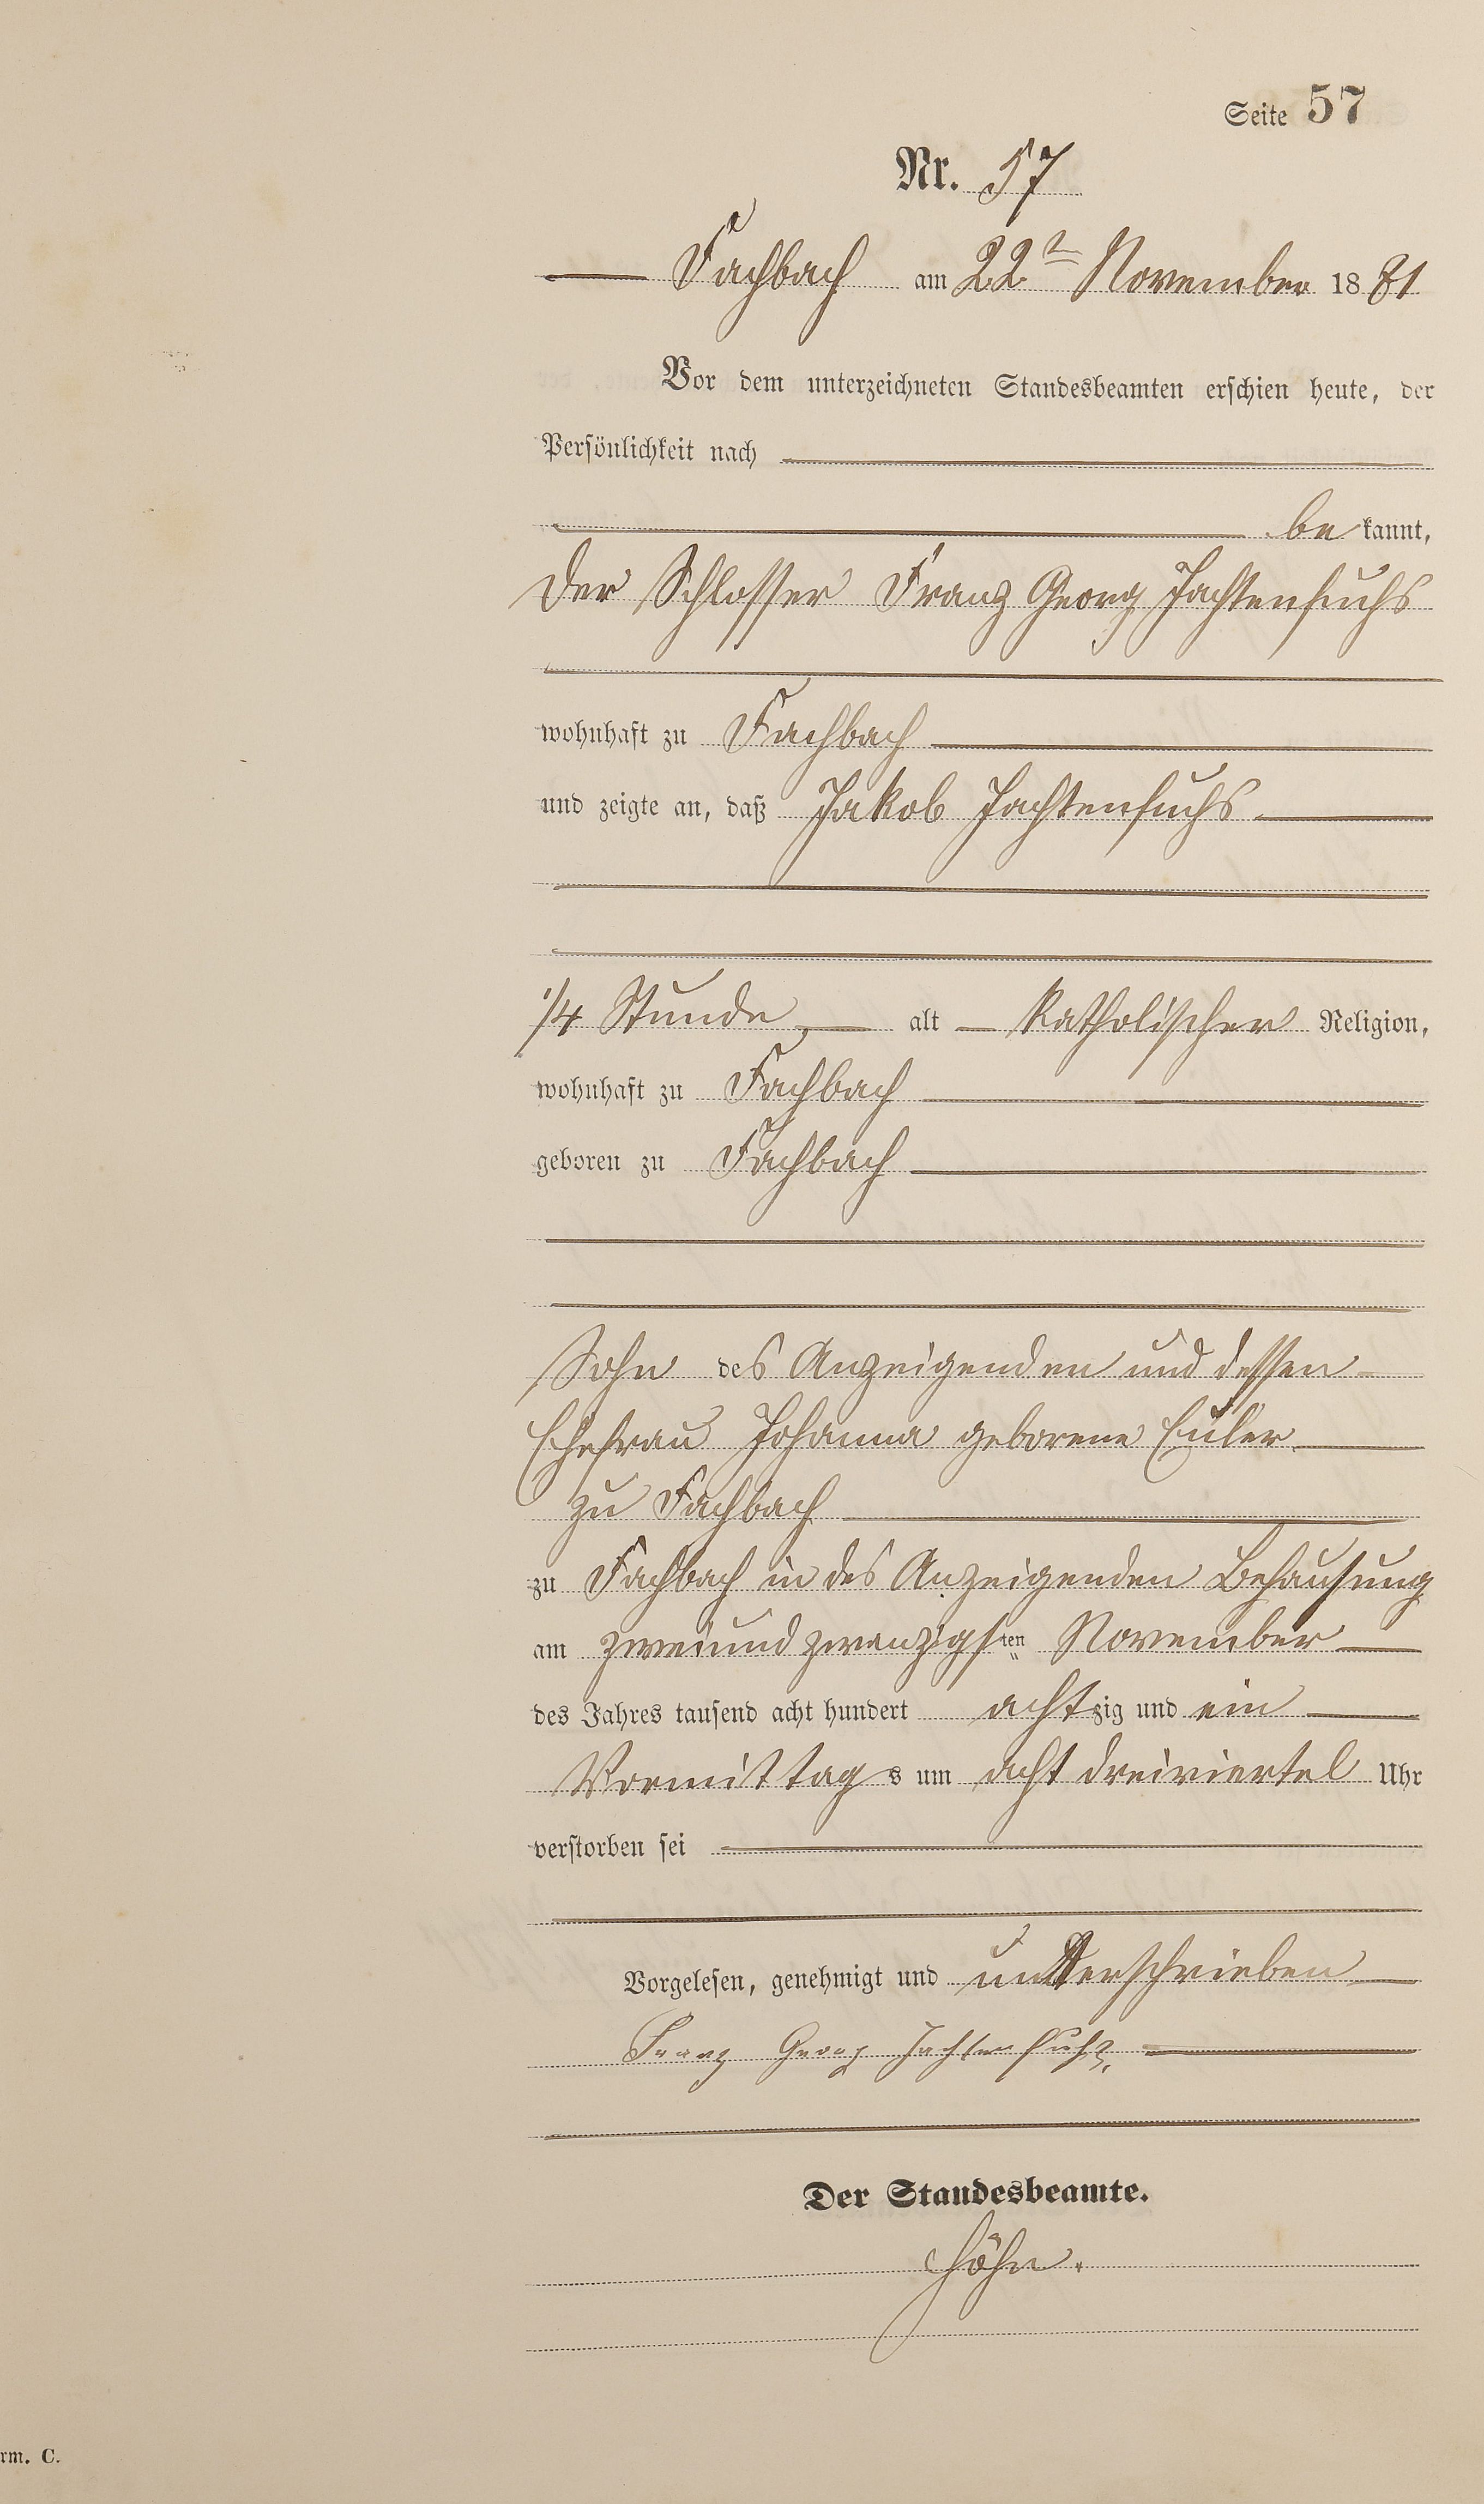 Seite 57
Nr. 57
Fachbach am 22t November 1881
Vor dem unterzeichneten Standesbeamten erschien heute, der
Persönlichkeit nach
be kannt,
der Schlosser Franz Georg Jachtenfuchs
wohnhaft zu Fachbach
und zeigte an, daß Jakob Jachtenfuchs
1/4 Stunde alt katholischer Religion,
wohnhaft zu Fachbach
geboren zu Fachbach
Sohn des Anzeigenden und dessen
Ehefrau Johanna geborene Euler
zu Fachbach
zu Fachbach in des Anzeigenden Behausung
am zweiundzwanzigsten November
des Jahres tausend acht hundert achtzig und ein
Vormittags um acht dreiviertel Uhr
verstorben sei
Vorgelesen, genehmigt und unterschrieben
Franz Georg Jachtenfuchs.
Der Standesbeamte.
Höhn.
rm. C.